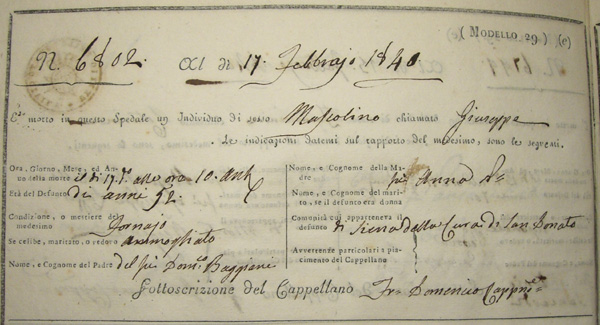 ( MODELLO 29. ) (e)
N. 6802. Al di 17. Febbrajo 1840
E' morto in questo Spedale un Individuo di sesso Mascolino chiamato Giuseppe
Le indicazioni datemi sul rapporto del medesimo, sono le seguenti.
Ora, Giorno, Mese, ed Anno della morte
Età del Defunto di anni 52.
Condizione, o mestiere del medesimo Fornajo
Se celibe, maritato, o vedovo Ammogliato
Nome, e Cognome del Padre del fù Domco. Baggiani
Nome, e Cognome della Madre fù Anna
Nome, e Cognome del marito, se il defunto era donna
Comunità cui apparteneva il defunto di Siena della Cura di San Donato
Avvertenze particolari a piacimento del Cappellano
Sottoscrizione del Cappellano Fr. Domenico